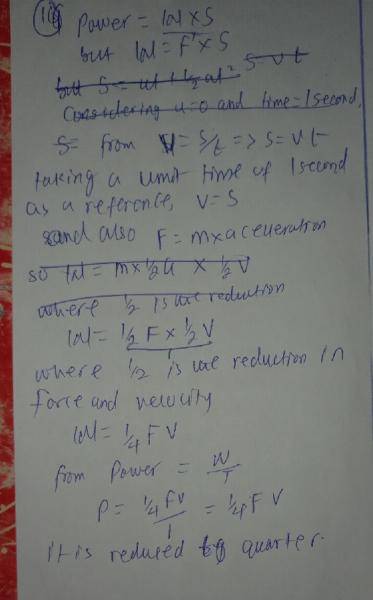 Power = W x S
but W = F x S
but S = ut + 1/2 at² S = vt
Considering u=0 and time = 1 second,
S = from V = S/t => S = vt
taking a unit time of 1 second
as a reference, V = S
and also F = m x acceneration
so W = m x 1/2 a x 1/2 V
where 1/2 is the reduction
W = 1/2 F x 1/2 V
where 1/2 is the reduction in
force and velocity
W = 1/4 F V
from Power = W/T
P = 1/4 FV / 1 = 1/4 F V
it is reduced quarter.